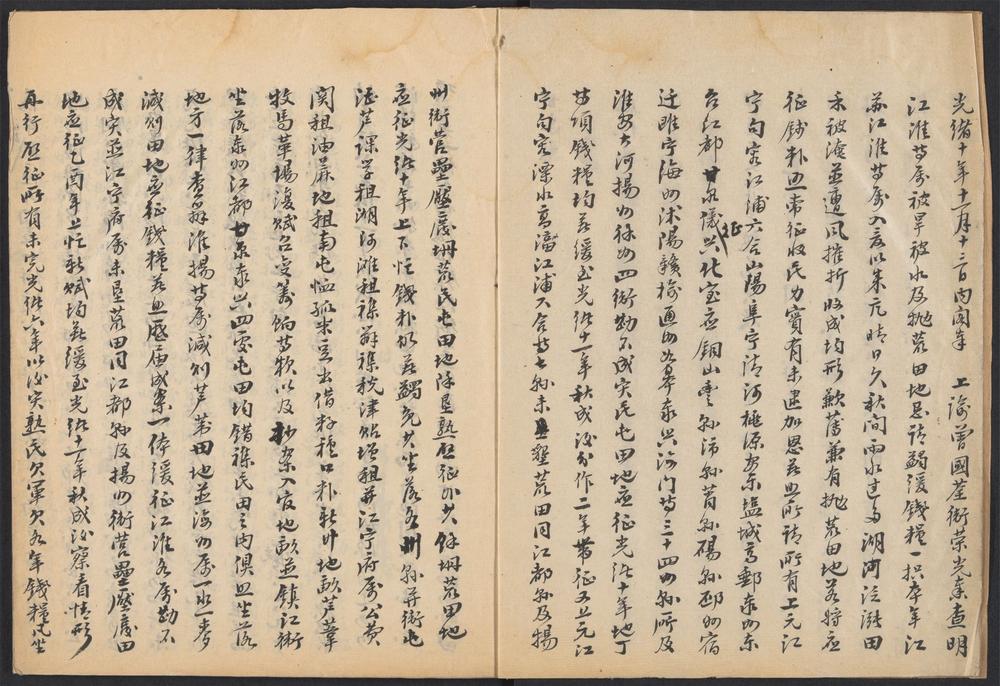 光緒十年十一月十三日內閣奉　上諭曾國荃衛榮光奏查明
江淮等屬被旱被水及拋荒田地忌請蠲緩錢糧一摺本年江
蘇江淮等屬入夏以來亢晴日久秋間雨水過多湖河泛漲田
禾被淹並遭風摧折收成均形歉薄兼有拋荒田地若將應
征錢糧照常征收民力實有未逮加恩著照所請所有上元江
寧句容江浦六合山陽阜寧清河桃源安東鹽城高郵泰州東
台江都甘泉儀征興化寶應銅山豐縣沛縣蕭縣碭縣邳州宿
遷睢寧海州沭陽贛榆通州如皋泰興海門等三十四州縣所及
淮安大河揚州徐州四衛勘不成災民屯田地應征光緒十年地丁
等項錢糧均著緩至光緒十一年秋成後分作二年帶征又上元江
寧句容溧水高淳江浦六合等七縣未墾荒田同江都縣及揚
州衛營壘壓廢坍荒民屯田地除墾熟啟征外其餘坍荒田地
應征光緒十年上下忙錢糧仍著蠲免其坐落各州縣并衛屯
漕蘆課學租湖河灘租雜辦雜稅津貼增租并江寧府屬公費
閑租油麻地租南屯恤孤米豆出借籽種口糧新升地畝蘆葦
牧馬草場復賦各變籌餉等款以及抄案入官地畝並鎮江衛
坐落泰州江都甘泉泰興四處屯田均錯雜民田之內俱照坐落
地方一律查辦淮揚等屬減則蘆葦田地並海州屬一水一麥
減則田地應征錢糧著照歷屆成案一體緩征江淮各屬勘不
成災並江寧府屬未墾荒田同江都縣及揚州衛營壘壓廢田
地應征乙酉年上忙新賦均著緩至光緒十一年秋成後察看情形
再行啟征所有未完光緒六年以後實熟民欠軍欠各年錢糧凡坐